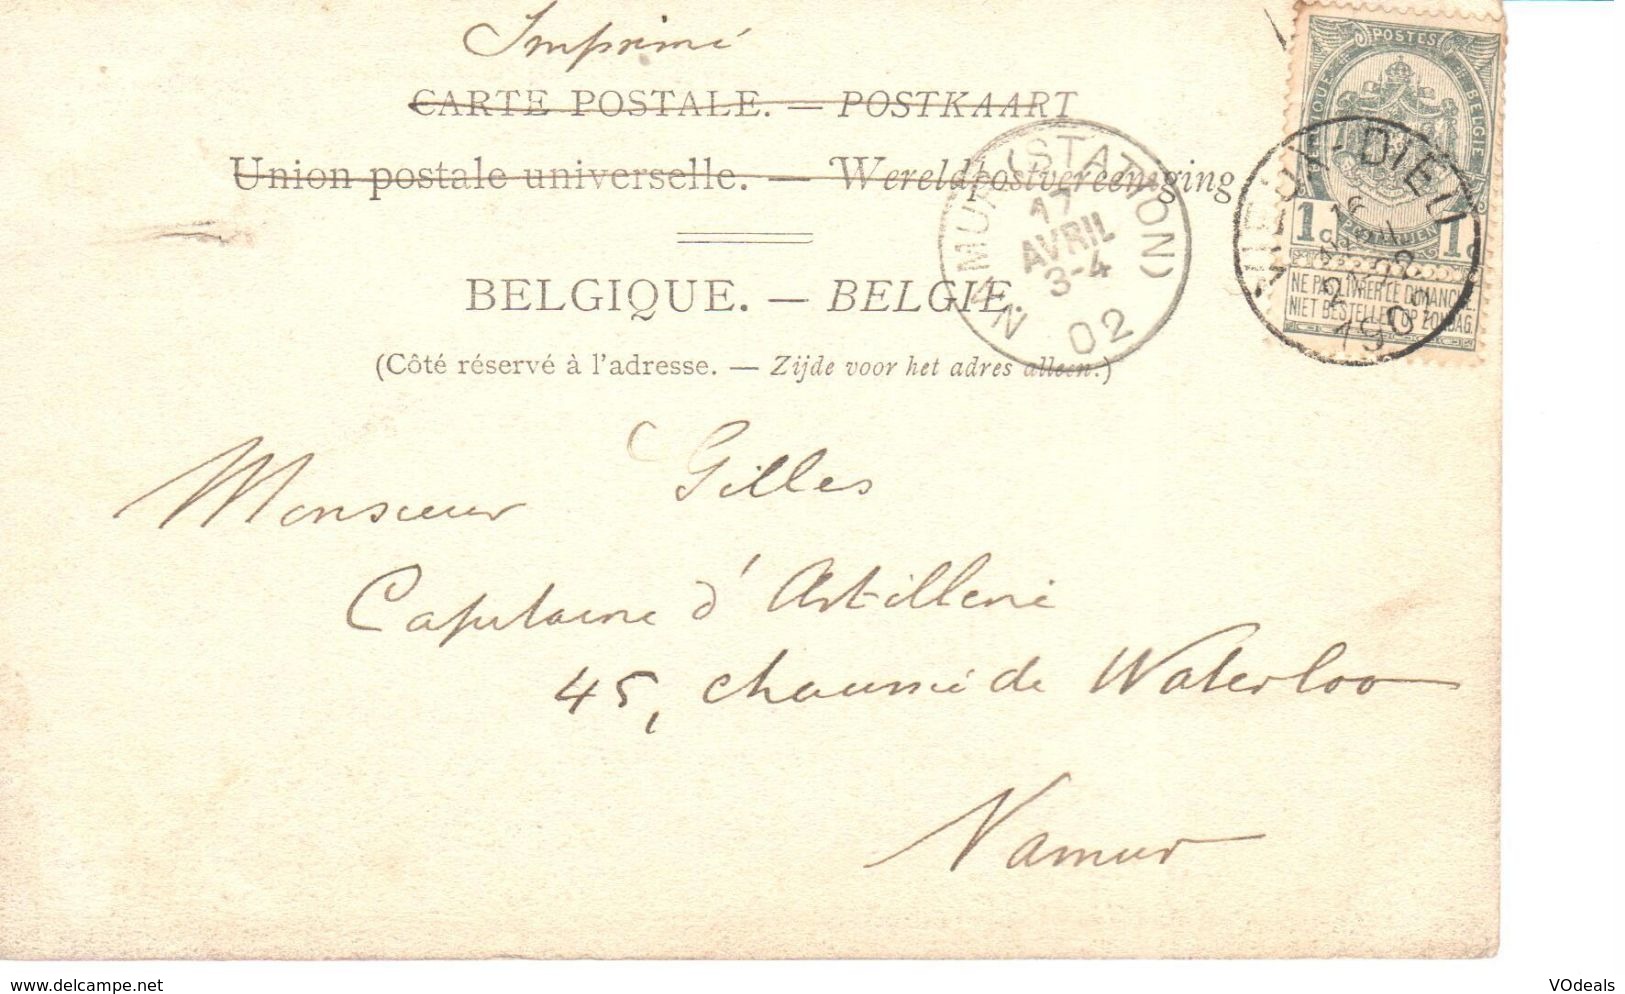 Imprimé
CARTE POSTALE. — POSTKAART
Union postale universelle. — Wereldpostvereeniging
BELGIQUE. — BELGIE.
(Côté réservé à l'adresse. — Zijde voor het adres alleen.)
POSTES
BELGIE
1c 1c
NE PAS LIVRER LE DIMANCHE.
NIET BESTELLEN OP ZONDAG.
VIEUX-DIEU
NAMUR (STATION)
17
AVRIL
3-4
02
Monsieur Gilles
Capitaine d'Artillerie
45, chaussée de Waterloo
Namur
www.delcampe.net
VOdeals